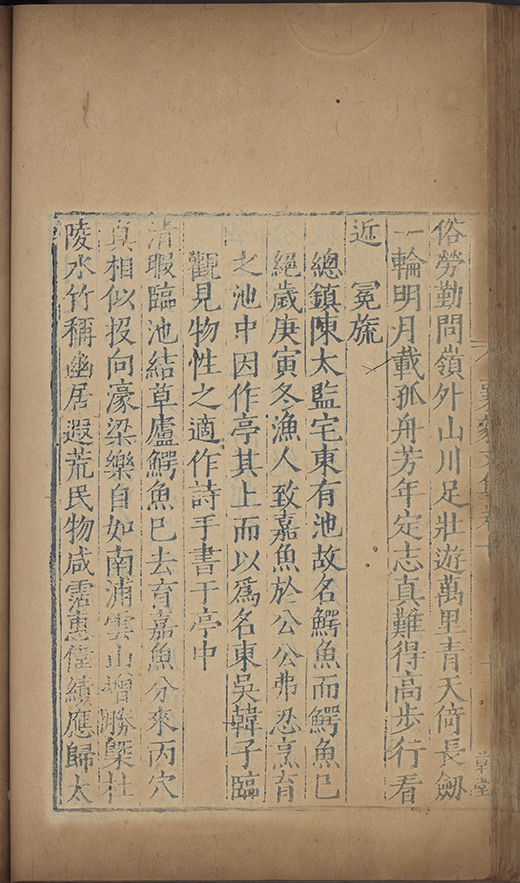 俗勞勤問嶺外山川足壯遊萬里青天倚長劒
一輪明月載孤舟芳年定志真難得高步行看
近冕旒
總鎮陳太監宅東有池故名鰐魚而鰐魚已
絕歲庚寅冬漁人致嘉魚於公公弗忍烹育
之池中因作亭其上而以爲名東吳韓子臨
觀見物性之適作詩手書于亭中
清暇臨池結草廬鰐魚已去育嘉魚分來丙穴
真相似投向濠梁樂自如南浦雲山增勝槩杜
陵水竹稱幽居遐荒民物咸霑惠偉績應歸太